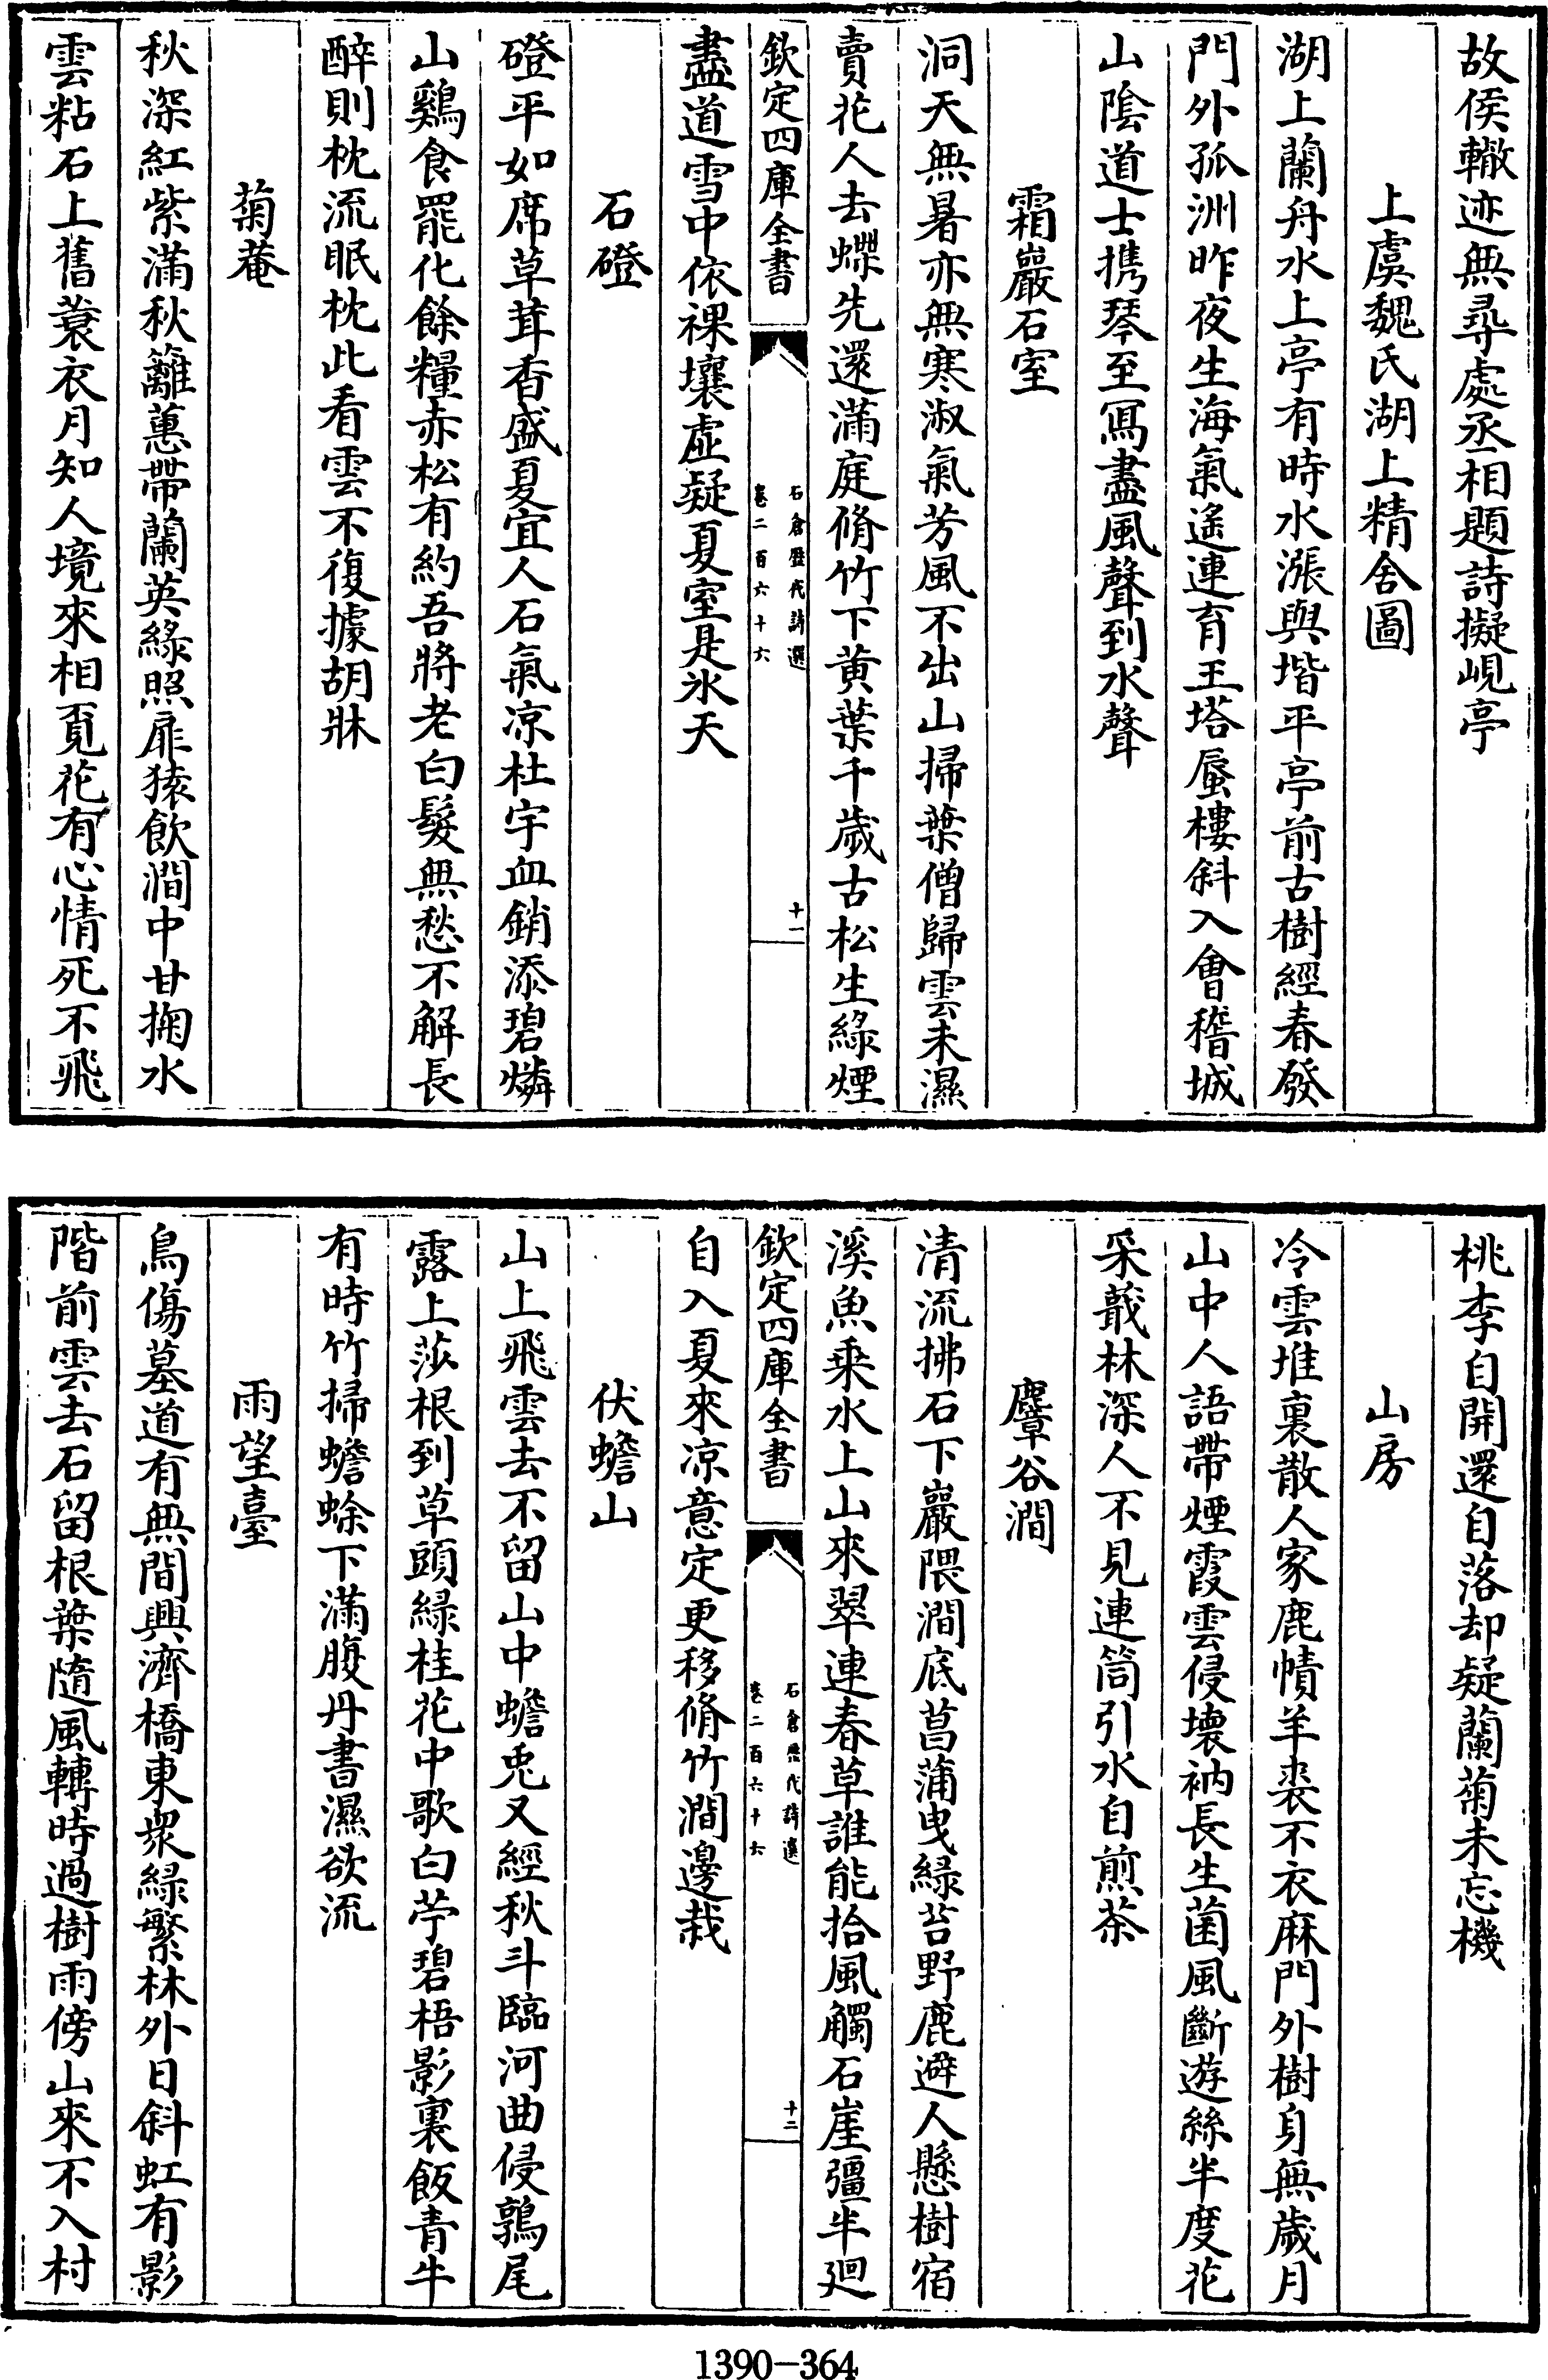 故侯轍迹無尋處丞相題詩擬峴亭
上虞魏氏湖上精舍圖
湖上蘭舟水上亭有時水漲與堦平亭前古樹經春發
門外孤洲昨夜生海氣遙連育王塔蜃樓斜入會稽城
山陰道士携琴至冩盡風聲到水聲
霜巖石室
洞天無暑亦無寒淑氣芳風不出山掃葉僧歸雲未濕
賣花人去蝶先還滿庭脩竹下黄葉千歲古松生綠煙
欽定四庫全書
石倉歷代詩選
卷二百六十六
十一
盡道雪中依祼壤虛疑夏室是氷天
石磴
磴平如席草茸香盛夏宜人石氣凉杜宇血銷添碧燐
山鷄食罷化餘糧赤松有約吾將老白髮無愁不解長
醉則枕流眠枕此看雲不復據胡牀
菊菴
秋深紅紫滿秋籬蕙帶蘭英綠照扉猿飲澗中甘掬水
雲粘石上舊蓑衣月知人境來相覓花有心情死不飛
桃李自開還自落却疑蘭菊未忘機
山房
冷雲堆裏散人家鹿幘羊裘不衣麻門外樹身無歲月
山中人語帶煙霞雲侵壊衲長生菌風斷遊絲半度花
采蕺林深人不見連筒引水自煎茶
麞谷澗
清流拂石下巖隈澗底菖蒲曳緑苔野鹿避人懸樹宿
溪魚乘水上山來翠連春草誰能拾風觸石崖彊半廻
欽定四庫全書
石倉歷代詩選
卷二百六十六
十二
自入夏來凉意定更移脩竹澗邊栽
伏蟾山
山上飛雲去不留山中蟾兎又經秋斗臨河曲侵鶉尾
露上莎根到草頭緑桂花中歌白苧碧梧影裏飯青牛
有時竹掃蟾蜍下滿腹丹書濕欲流
雨望臺
鳥傷墓道有無間興濟橋東衆緑繁林外日斜虹有影
階前雲去石留根葉隨風轉時過樹雨傍山來不入村
1390-364